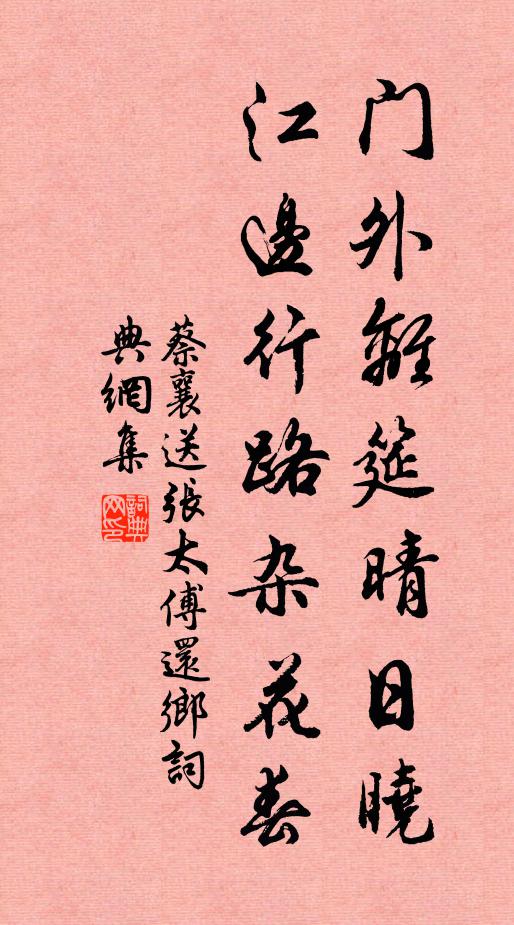 门外離筵晴日曉
江邊行路杂花春
蔡襄送張太傅還鄉詞
典網集
詞典
网印